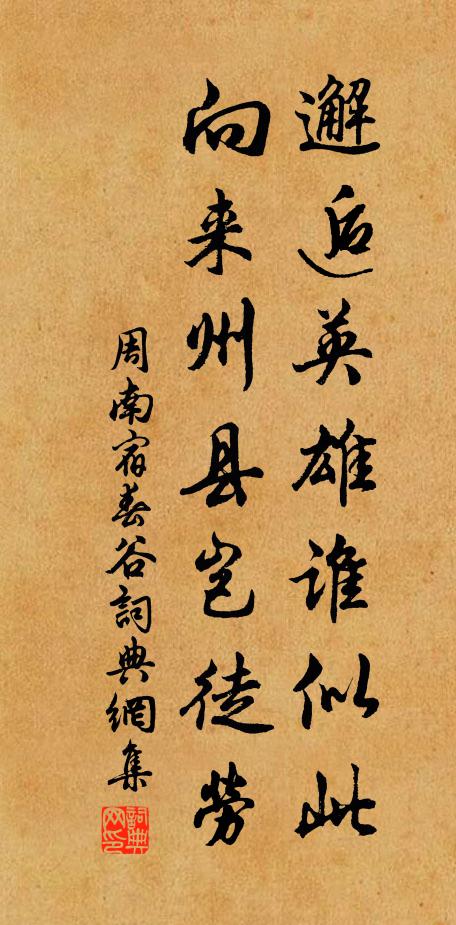 邂逅英雄谁似此
向来州县岂徒劳
周南宿春谷詞典網集
詞典网印